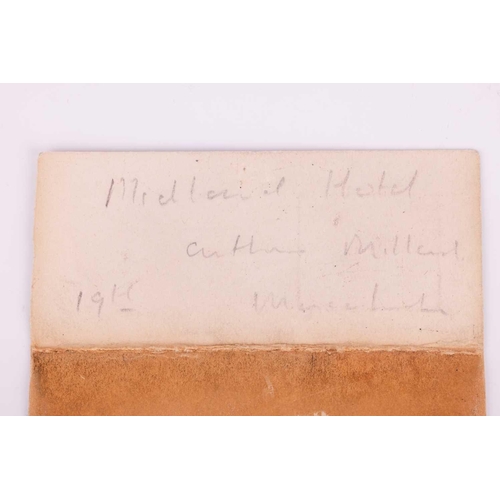 Midland Hotel
Arthur Millard
19th Manchester